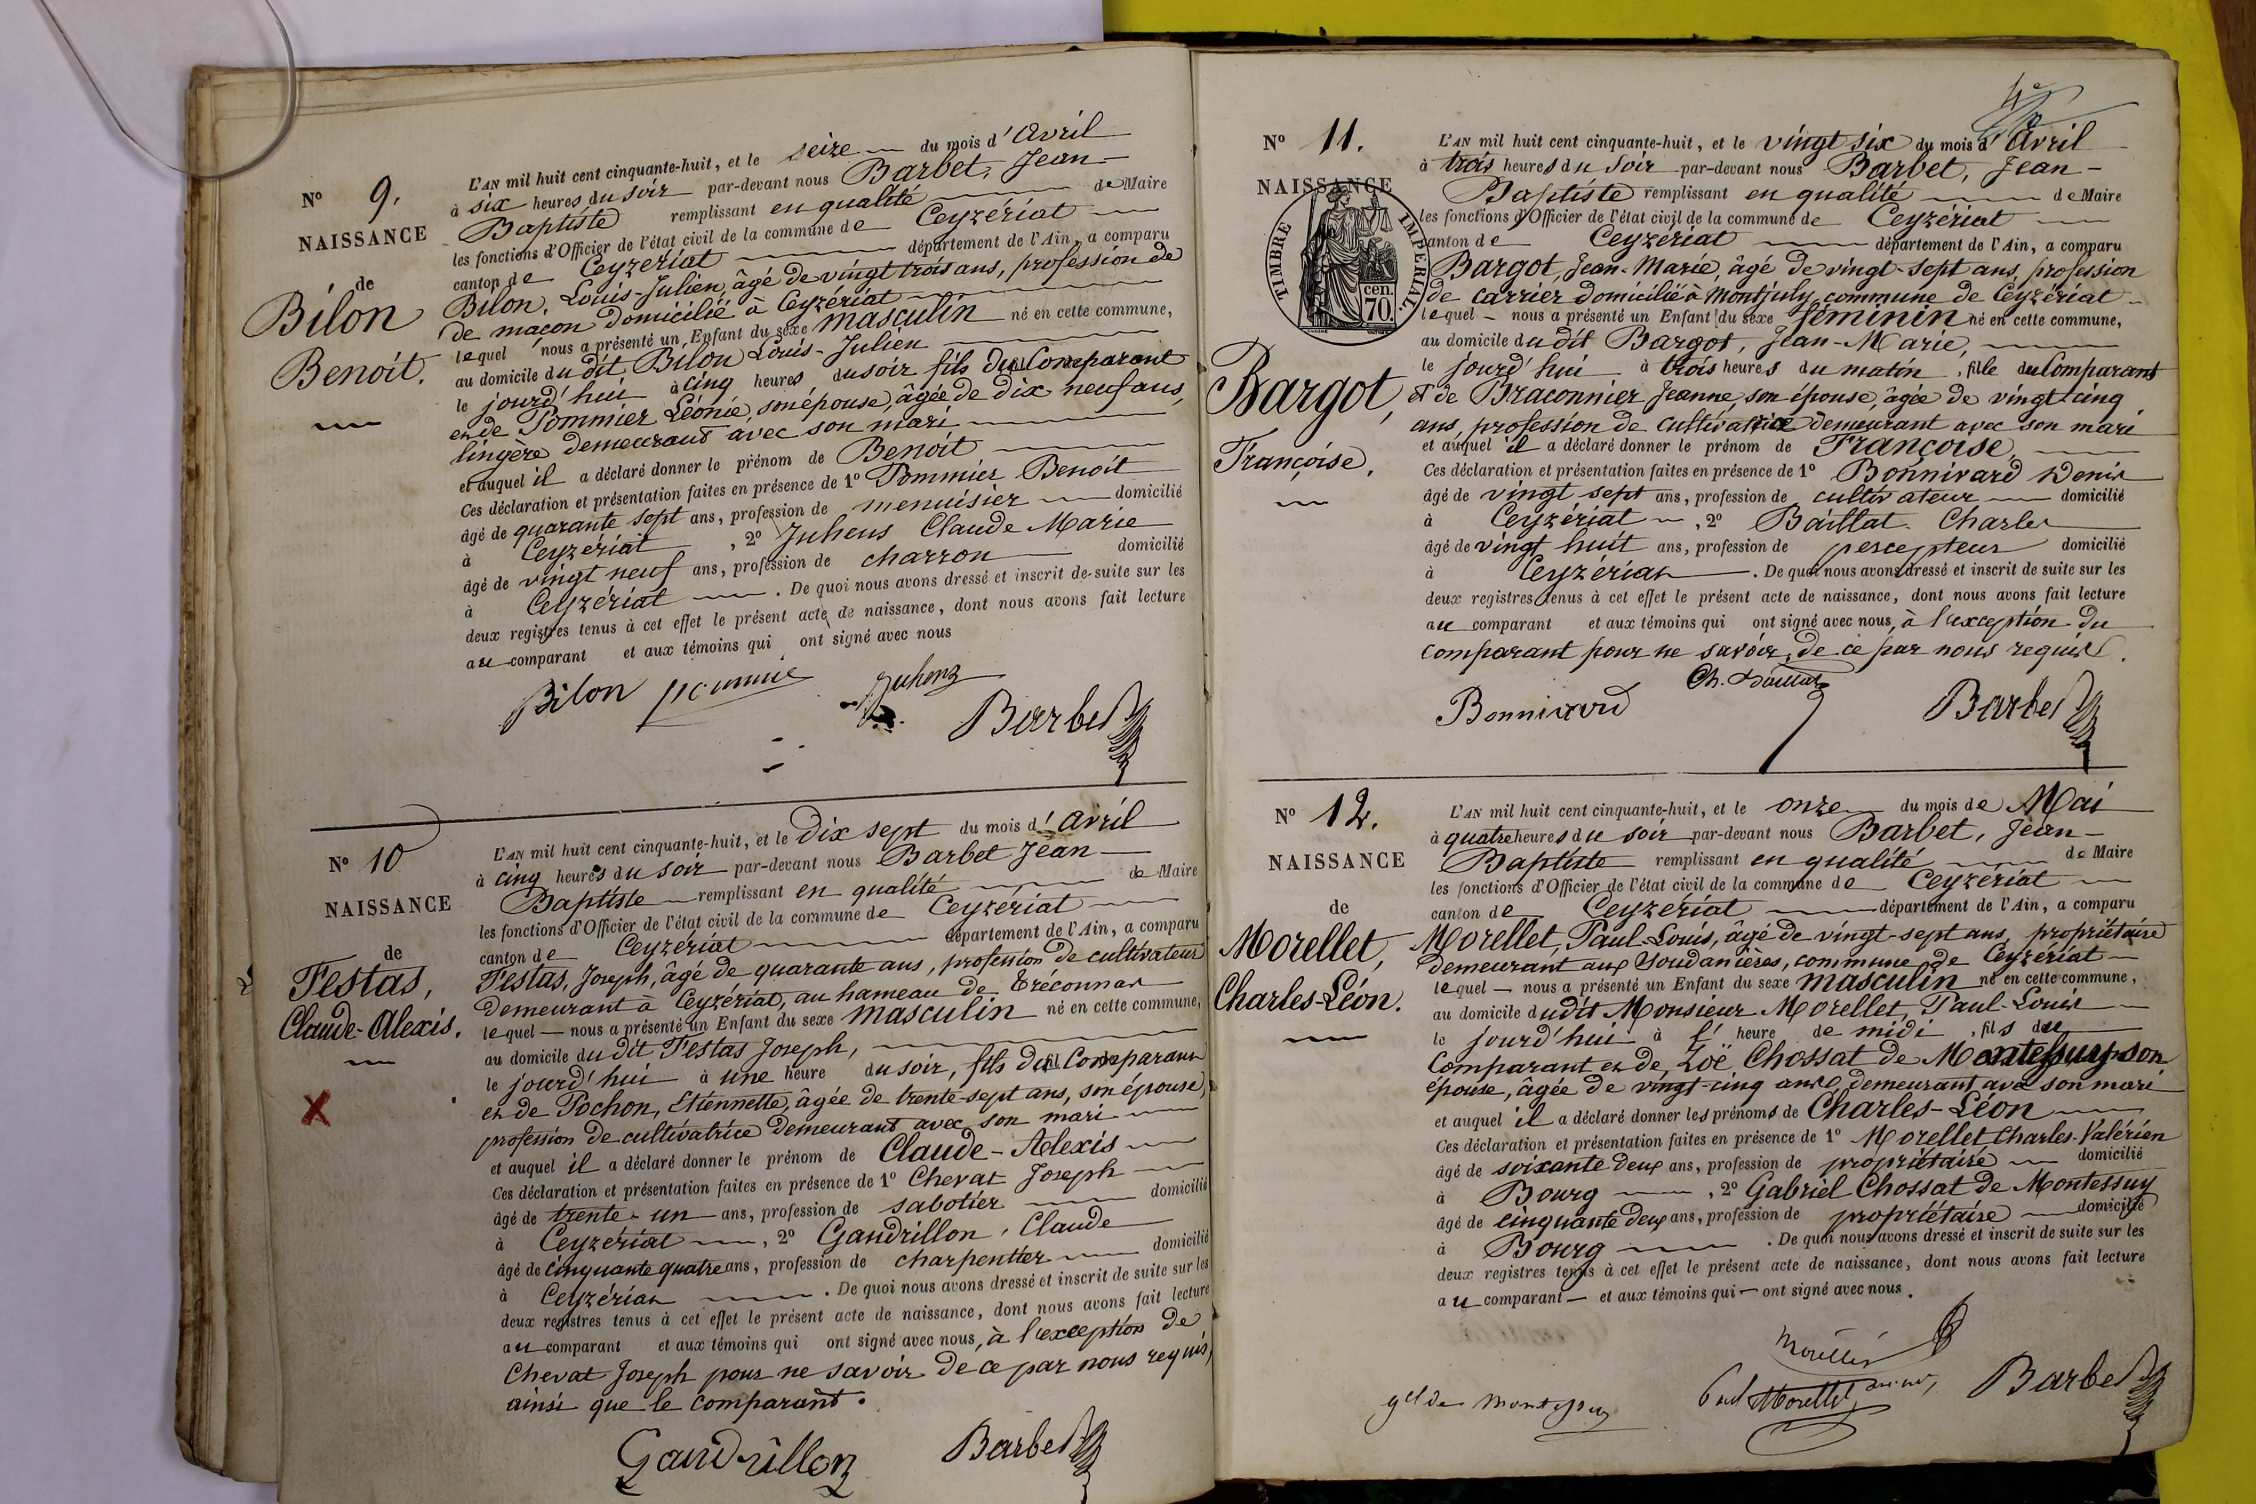 N° 9.
NAISSANCE
de
Bilon
Benoit.
L'AN mil huit cent cinquante-huit, et le seize du mois d'Avril
à six heures du soir par-devant nous Barbet, Jean-
Baptiste remplissant en qualité de Maire
les fonctions d'Officier de l'état civil de la commune de Ceyzériat
canton de Ceyzériat département de l'Ain, a comparu
Bilon, Louis-Julien, âgé de vingt trois ans, profession de
de maçon domicilié à Ceyzériat
lequel nous a présenté un Enfant du sexe masculin né en cette commune,
au domicile du dit Bilon Louis-Julien
le jourd'hui à cinq heures du soir fils du Comparant
et de Pommier Léonie, son épouse, âgée de dix-neuf ans,
lingère demeurant avec son mari
et auquel il a déclaré donner le prénom de Benoit
Ces déclaration et présentation faites en présence de 1° Pommier Benoit
âgé de quarante sept ans, profession de menuisier domicilié
à Ceyzériat, 2° Juhens Claude Marie
âgé de vingt neuf ans, profession de charron domicilié
à Ceyzériat. De quoi nous avons dressé et inscrit de suite sur les
deux registres tenus à cet effet le présent acte de naissance, dont nous avons fait lecture
au comparant et aux témoins qui ont signé avec nous
Bilon Barbet
N° 10
NAISSANCE
de
Festas,
Claude-Alexis.
X
L'AN mil huit cent cinquante-huit, et le Dix sept du mois d'Avril
à cinq heures du soir par-devant nous Barbet Jean
Baptiste remplissant en qualité de Maire
les fonctions d'Officier de l'état civil de la commune de Ceyzériat
canton de Ceyzériat département de l'Ain, a comparu
Festas, Joseph, âgé de quarante ans, profession de cultivateur
demeurant à Ceyzériat, au hameau de Tréconnas
lequel nous a présenté un Enfant du sexe masculin né en cette commune,
au domicile du dit Festas Joseph,
le jourd'hui à une heure du soir, fils du Comparant
et de Pochon, Etiennette, âgée de trente-sept ans, son épouse,
profession de cultivatrice demeurant avec son mari
et auquel il a déclaré donner le prénom de Claude-Alexis
Ces déclaration et présentation faites en présence de 1° Chevat Joseph
âgé de trente-un ans, profession de sabotier domicilié
à Ceyzériat, 2° Gandrillon, Claude
âgé de cinquante quatre ans, profession de charpentier domicilié
à Ceyzériat. De quoi nous avons dressé et inscrit de suite sur les
deux registres tenus à cet effet le présent acte de naissance, dont nous avons fait lecture
au comparant et aux témoins qui ont signé avec nous, à l'exception de
Chevat Joseph pour ne savoir de ce par nous requis,
ainsi que le comparant.
Gandrillon Barbet
N° 11.
NAISSANCE
TIMBRE IMPERIAL.
cen.
70.
Bargot,
Françoise.
L'AN mil huit cent cinquante-huit, et le vingt six du mois d'Avril
à trois heures du soir par-devant nous Barbet, Jean-
Baptiste remplissant en qualité de Maire
les fonctions d'Officier de l'état civil de la commune de Ceyzériat
canton de Ceyzériat département de l'Ain, a comparu
Bargot, Jean-Marie, âgé de vingt-sept ans, profession
de carrier domicilié à Montjuly commune de Ceyzériat
lequel nous a présenté un Enfant du sexe féminin né en cette commune,
au domicile du dit Bargot, Jean-Marie,
le jourd'hui à trois heures du matin, fille du Comparant
et de Braconnier Jeanne, son épouse, âgée de vingt-cinq
ans, profession de cultivatrice demeurant avec son mari
et auquel il a déclaré donner le prénom de Françoise,
Ces déclaration et présentation faites en présence de 1° Bonnivard Denis
âgé de vingt sept ans, profession de cultivateur domicilié
à Ceyzériat, 2° Baillat Charles
âgé de vingt huit ans, profession de percepteur domicilié
à Ceyzériat. De quoi nous avons dressé et inscrit de suite sur les
deux registres tenus à cet effet le présent acte de naissance, dont nous avons fait lecture
au comparant et aux témoins qui ont signé avec nous, à l'exception du
comparant pour ne savoir, de ce par nous requis.
Bonnivard Barbet
N° 12.
NAISSANCE
de
Morellet,
Charles-Léon.
L'AN mil huit cent cinquante-huit, et le onze du mois de Mai
à quatre heures du soir par-devant nous Barbet, Jean-
Baptiste remplissant en qualité de Maire
les fonctions d'Officier de l'état civil de la commune de Ceyzériat
canton de Ceyzériat département de l'Ain, a comparu
Morellet, Paul-Louis, âgé de vingt-sept ans, propriétaire
demeurant aux Soudanières, commune de Ceyzériat
lequel nous a présenté un Enfant du sexe masculin né en cette commune,
au domicile dudit Monsieur Morellet, Paul-Louis
le jourd'hui à l'heure de midi, fils du
Comparant et de Zoë Chossat de Montessuy son
épouse, âgée de vingt-cinq ans, demeurant avec son mari
et auquel il a déclaré donner les prénoms de Charles-Léon
Ces déclaration et présentation faites en présence de 1° Morellet Charles-Valérien
âgé de soixante deux ans, profession de propriétaire domicilié
à Bourg, 2° Gabriel Chossat de Montessuy
âgé de cinquante deux ans, profession de propriétaire domicilié
à Bourg. De quoi nous avons dressé et inscrit de suite sur les
deux registres tenus à cet effet le présent acte de naissance, dont nous avons fait lecture
au comparant et aux témoins qui ont signé avec nous.
Barbet